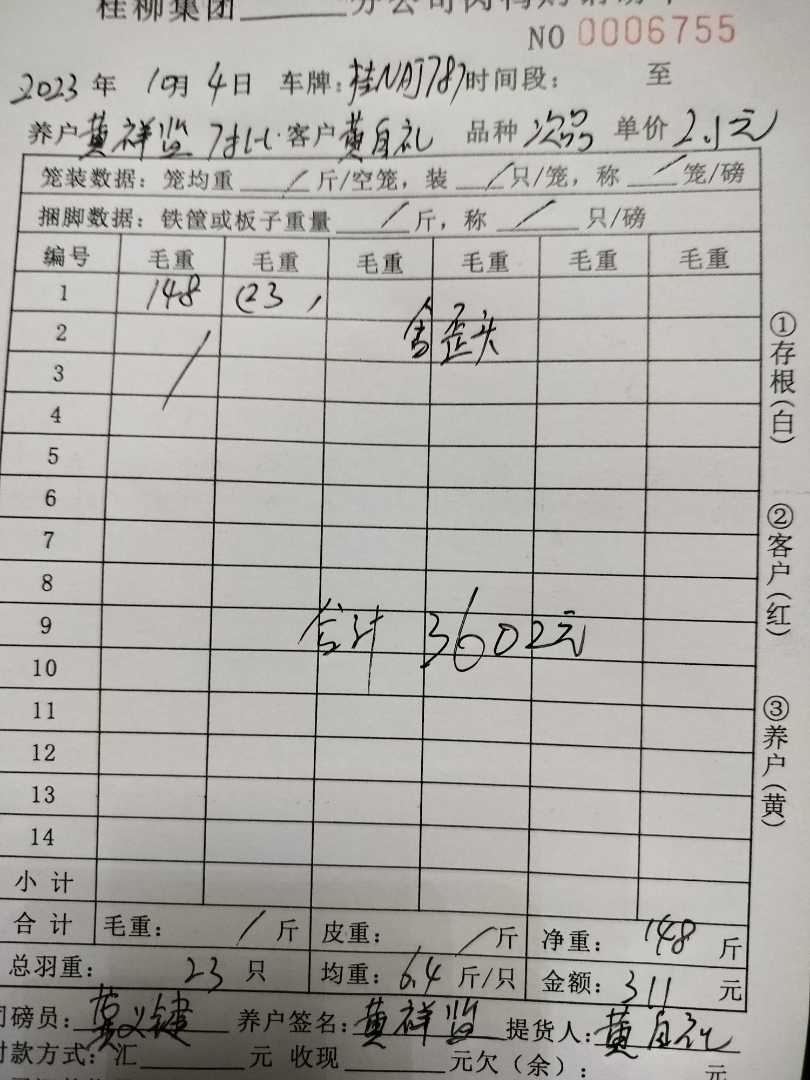 桂柳集团______分公司肉鸭购销磅单
NO 0006755
2023年 10月 4日 车牌：桂NAJ787 时间段： 至
养户 黄祥监 客户 黄自礼 品种 次品 单价 2.1元
笼装数据：笼均重 / 斤/空笼，装 / 只/笼，称 / 笼/磅
捆脚数据：铁筐或板子重量 / 斤，称 / 只/磅
编号 毛重 毛重 毛重 毛重 毛重 毛重
1 148 (23,
2 含歪头
3 /
4
5
6
7
8
9 合计 3602元
10
11
12
13
14
小计
合计 毛重： / 斤 皮重： / 斤 净重： 148 斤
总羽重： 23 只 均重： 6.4 斤/只 金额： 311 元
司磅员：莫义键 养户签名：黄祥监 提货人：黄自礼
付款方式：汇______元 收现______元欠（余）： 元
①存根(白)
②客户(红)
③养户(黄)